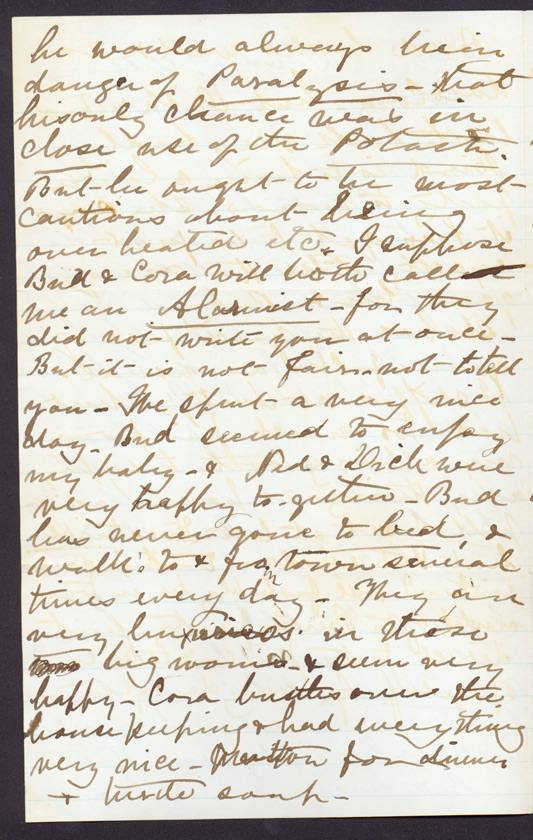 he would always be in
danger of Paralysis - that
his only chance was in
close use of the Potash.
But he ought to be most
cautious about being
over heated etc. I suppose
Bud & Cora will both call
me an Alarmist - for they
did not write you at once -
But it is not fair - not to tell
you - We spent a very nice
day - Bud seemed to enjoy
my baby - & Ned & Dick were
very happy together - Bud
has never gone to bed, &
walks to & from town several
times every day - They are
very luxurious in those
big rooms - & seem very
happy - Cora bustles over the
house keeping & had everything
very nice - Mutton for dinner
& turtle soup -